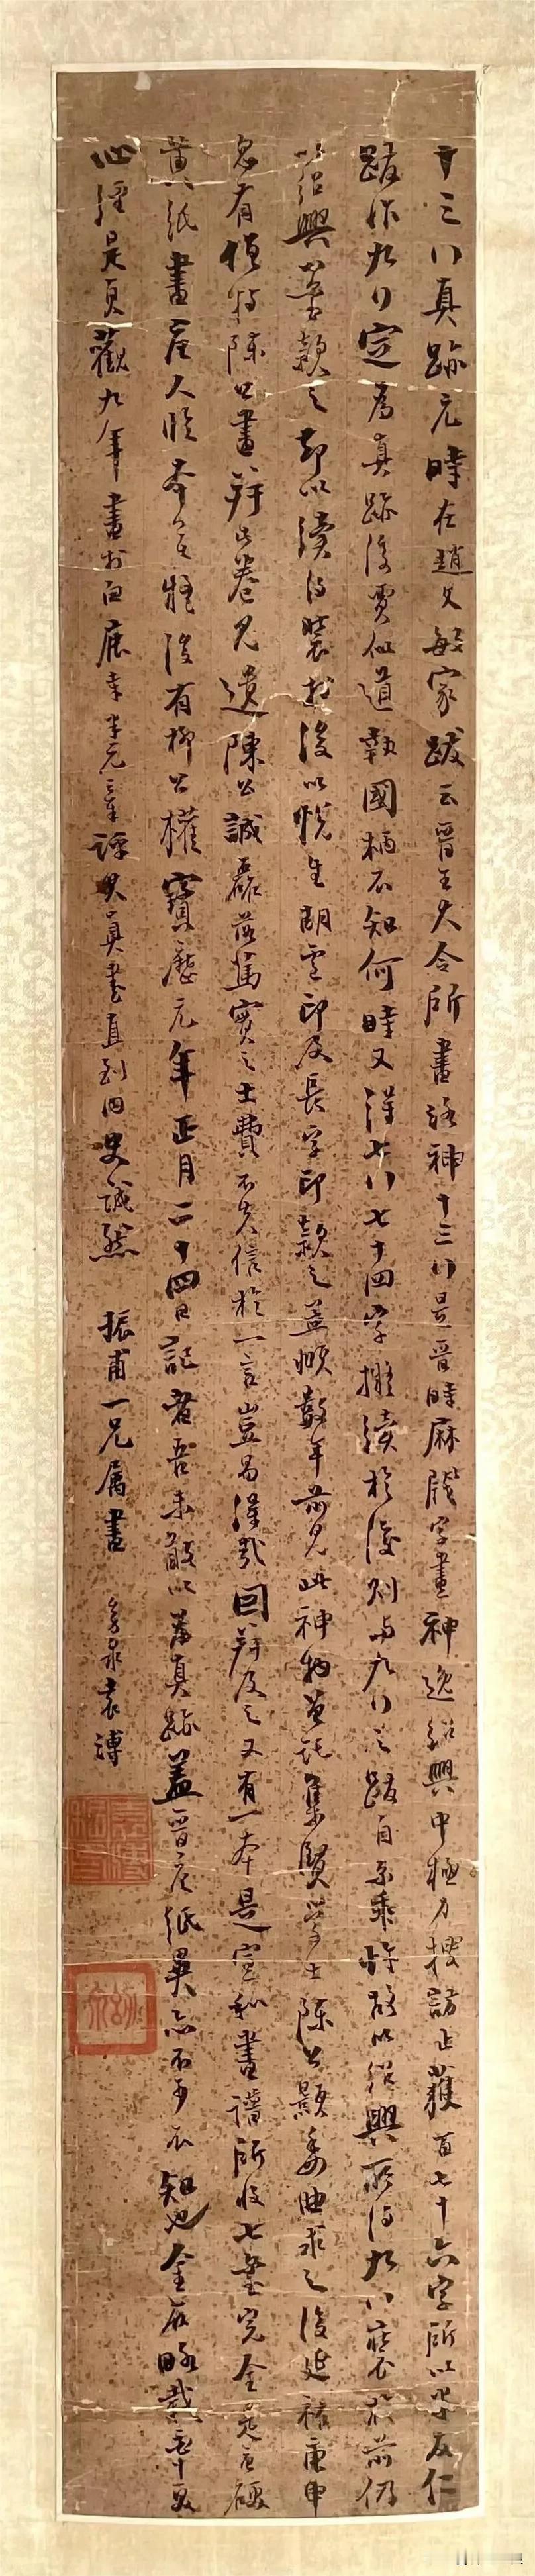 十三行真跡元時在趙文敏家跋云晉王大令所書洛神十三行是晉時麻牋字畫神逸紹興中極力搜訪止獲百七十六字所以米友仁
跋作九行定為真跡後賈似道執國柄不知何時又得七行七十四字擬續於後則與九行之跋自系乖忤故以紹興所得九行裝於前仍
以紹興小璽款之却以續得裝於後以悅生胡盧印及長字印款之蓋慨數年前見此神物曾託集賢學士陳公顥委曲求之後延祐庚申
忽有恒持陳公書并此卷見遺陳公誠磊落篤實之士費不失信於一言豈易得哉 回并及之又有一本是宣和書譜所收七璽完全是唐硬
黃紙書唐人臨本後有柳公權寶歷元年正月二十四日記者吾未敢以為真跡蓋晉唐紙異亦不可不知也
心經是貞觀九年書於白鹿寺米元章評其真書直到內史誠然
振甫一兄屬書
袁溥